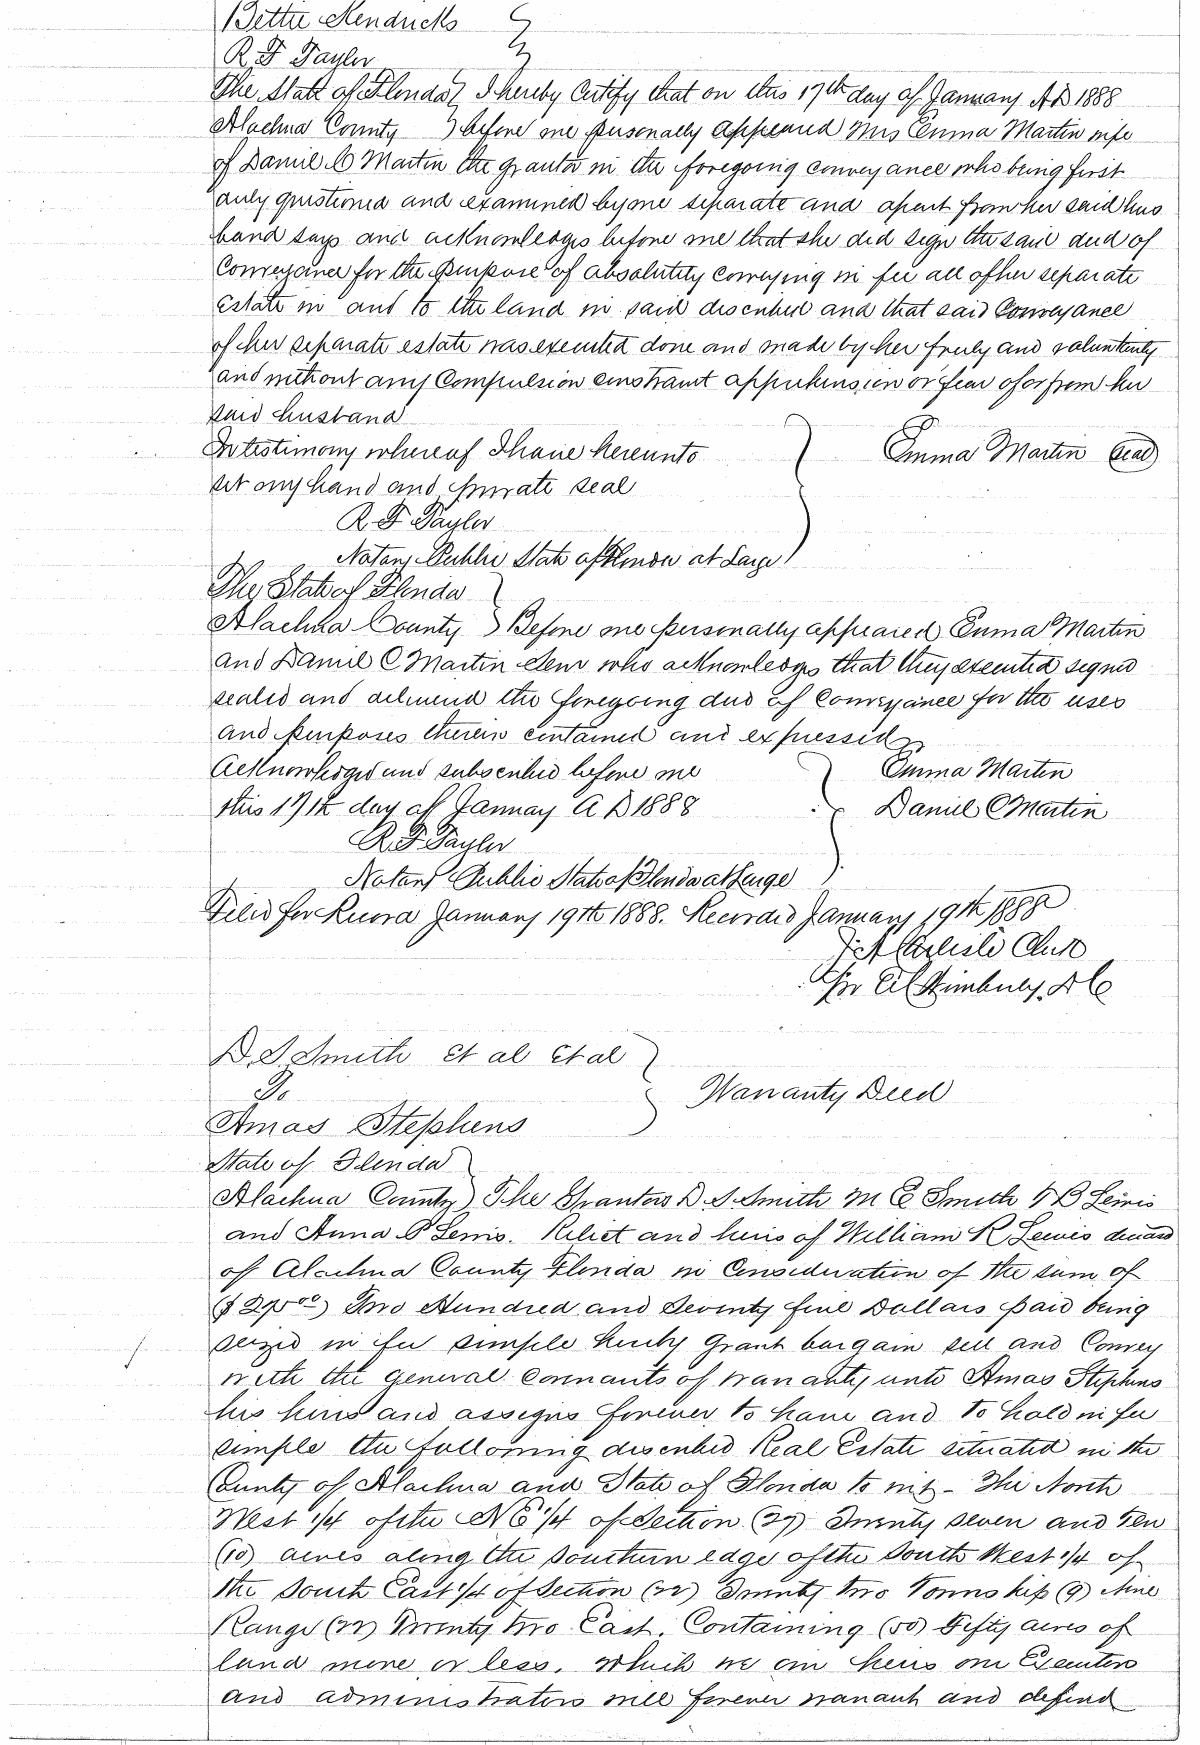 Bettie Kendricks
R F Taylor
The State of Florida I hereby Certify that on this 17th day of January AD 1888
Alachua County before me personally appeared Mrs Emma Martin wife
of Daniel C Martin the grantor in the foregoing conveyance who being first
duly questioned and examined by me separate and apart from her said hus
band says and acknowledges before me that she did sign the said deed of
Conveyance for the purpose of absolutely conveying in fee all of her separate
Estate in and to the land in said described and that said Conveyance
of her separate estate was executed done and made by her freely and voluntarily
and without any Compulsion constraint apprehension or fear of or from her
said husband
In testimony whereof I have hereunto Emma Martin (seal)
set my hand and private seal
R F Taylor
Notary Public State of Florida at Large
The State of Florida
Alachua County Before me personally appeared Emma Martin
and Daniel C Martin who acknowledges that they executed signed
sealed and delivered the foregoing deed of Conveyance for the uses
and purposes therein contained and expressed
Acknowledged and subscribed before me Emma Martin
this 17th day of January A D 1888 Daniel C Martin
R F Taylor
Notary Public State of Florida at Large
Filed for Record January 19th 1888. Recorded January 19th 1888
J A Carlisle Clerk
Per D C
D. S. Smith et al et al
To Warranty Deed
Amas Stephens
State of Florida
Alachua County The Grantors D S Smith M E Smith F B Lewis
and Anna P Lewis. Relict and heirs of William R Lewis deceased
of Alachua County Florida in Consideration of the sum of
($275 00) Two Hundred and Seventy five Dollars paid being
seized in fee simple hereby grant bargain sell and Convey
with the general covenants of warranty unto Amas Stephens
his heirs and assigns forever to have and to hold in fee
simple the following described Real Estate situated in the
County of Alachua and State of Florida to wit - The North
West 1/4 of the NE 1/4 of Section (27) Twenty seven and Ten
(10) acres along the southern edge of the South West 1/4 of
the South East 1/4 of Section (22) Twenty two Township (9) Nine
Range (22) Twenty two East. Containing (50) Fifty acres of
land more or less. which we our heirs our Executors
and administrators will forever warrant and defend